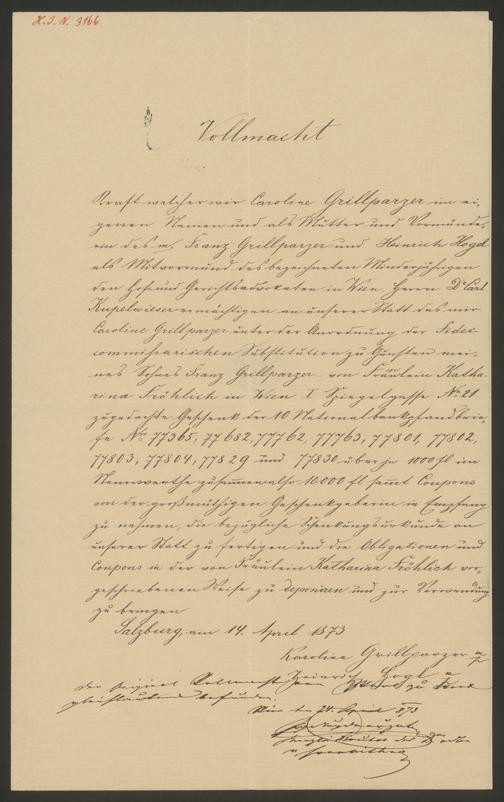 H. I. N. 3166
Vollmacht
Kraft welcher wir Caroline Grillparzer im ei,
genen Namen und als Mutter und Vormünde,
rin des m. Franz Grillparzer und Heinrich Hogl
als Mitvormund des bezeichneten Minderjährigen
den Hof und Gerichtsadvokaten in Wien Herrn Dr Carl
Kupelwieser ermächtigen an unserer Statt das mir
Caroline Grillparzer unter der Anordnung der Fidei-
commissarischen Substitution zu Gunsten mei,
nes Sohnes Franz Grillparzer von Fräulein Katha
rina Fröhlich in Wien I Spiegelgasse No 21
zugedachte Geschenk der 10 Nationalbankpfandbrie,
fe No 77365, 77682, 77762, 77763, 77801, 77802,
77803, 77804, 77829 und 77830 über je 1000 fl im
Nennwerthe zusammen also 10.000 fl samt Coupons
von der großmüthigen Geschenkgeberin in Empfang
zu nehmen, die bezügliche Schenkungsurkunde an
unserer Statt zu fertigen und die Obligationen und
Coupons in der von Fräulein Katharina Fröhlich vor,
geschriebenen Weise zu deponiren und zur Verwendung
zu bringen
Salzburg am 14. April 1873
Karoline Grillparzer
Heinrich Hogl
der Original Vollmacht
gleichlautend befunden.
Wien den 24. April 1873